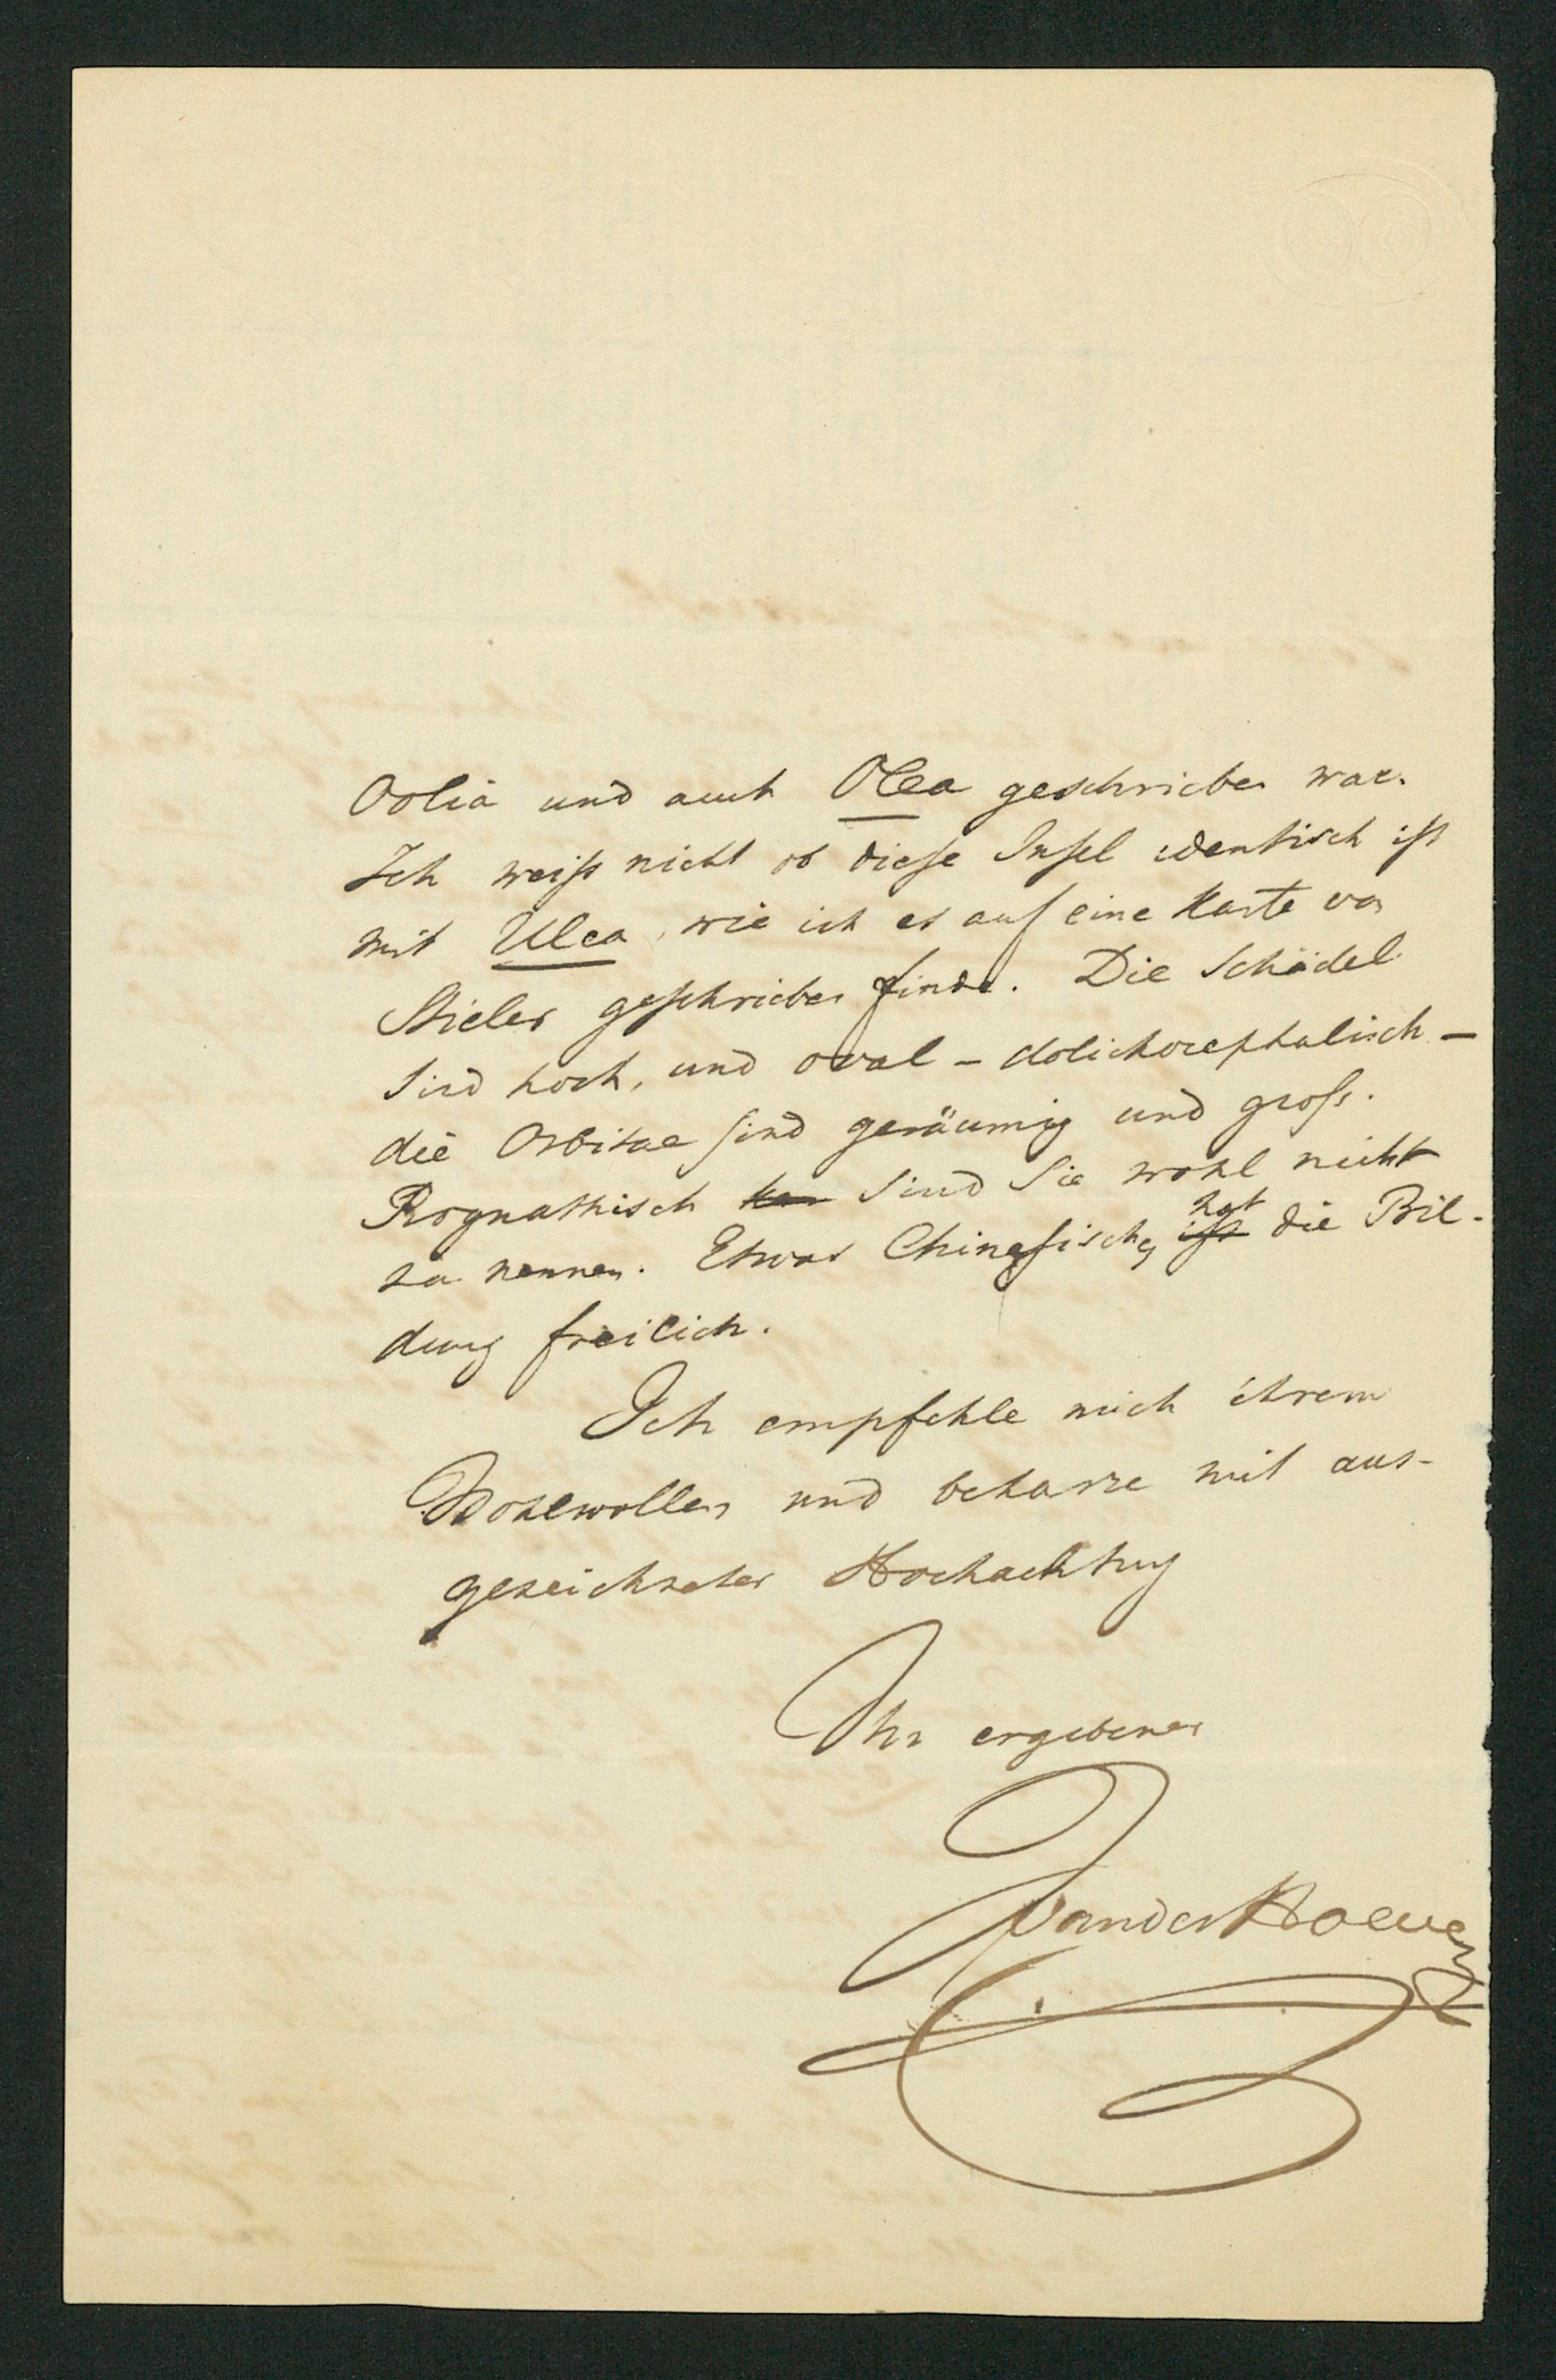 Oolia und auch Olea geschrieben war.
Ich weiſs nicht ob dieſe Inſel identisch iſt
mit Ulea, wie ich es auf eine Karte von
Stieler geſchrieben finde. Die Schädel
sind hoch, und oval - dolichocephalisch -
die Orbitae ſind geräumig und groſs.
Prognathisch sind Sie wohl nicht
zu nennen. Etwas Chineſisches iſt hat die Bil-
dung freilich.
Ich empfehle mich ihrem
Wohlwollen und beharre mit aus-
gezeichneter Hochachtung
Ihr ergebener
J van der Hoeven